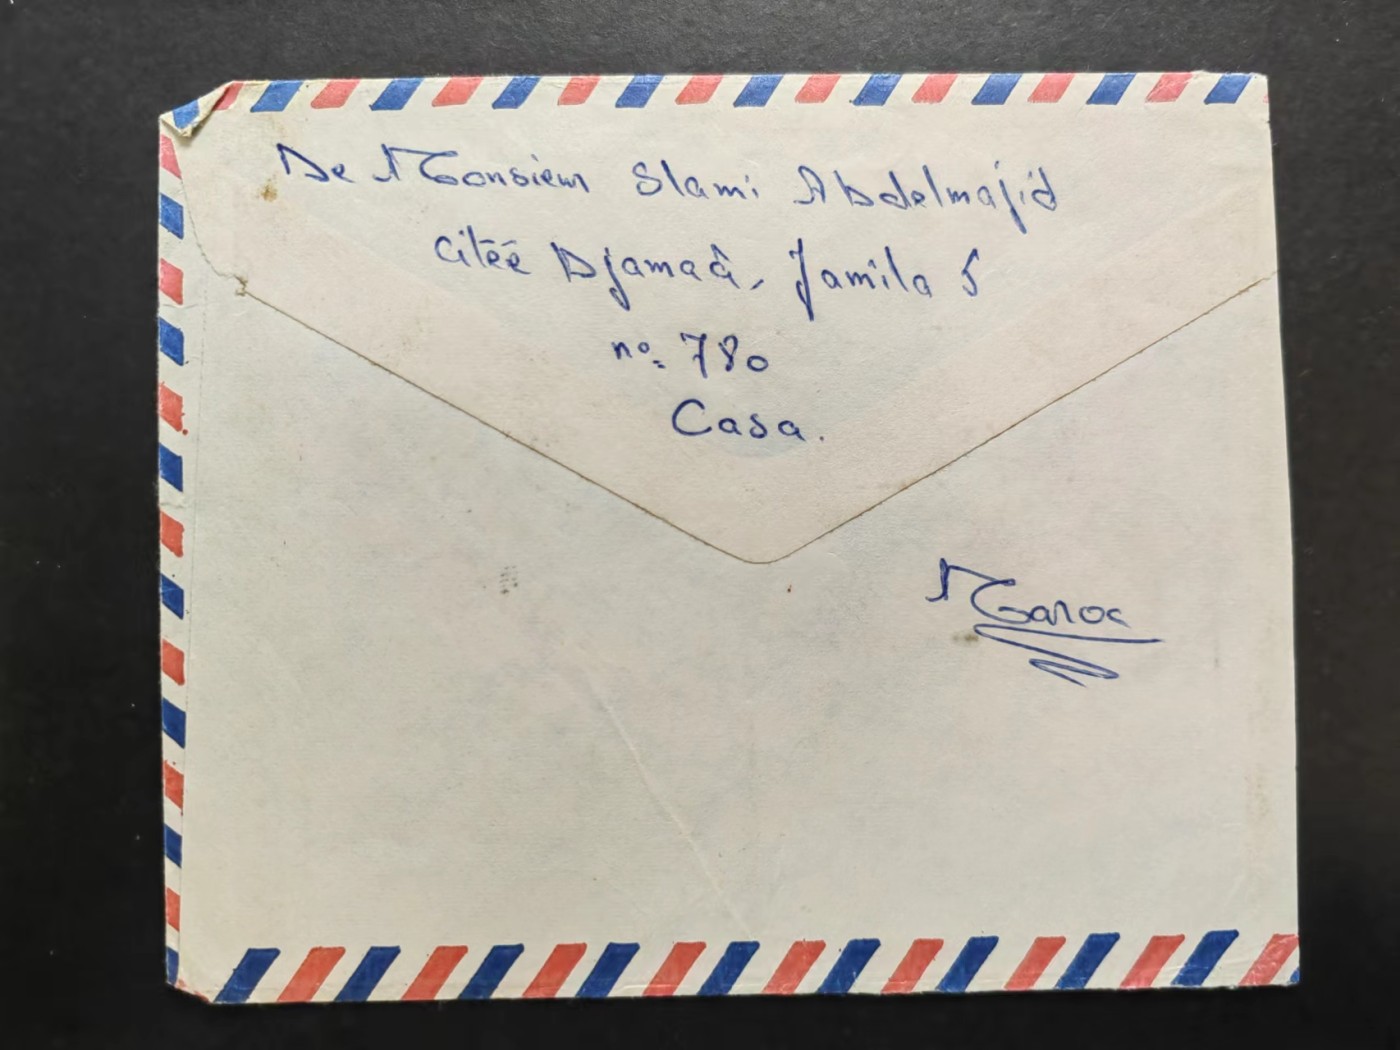 De Monsieur Slami Abdelmajid
Citéé Djamaâ, Jamila 5
no: 780
Casa.
Maroc